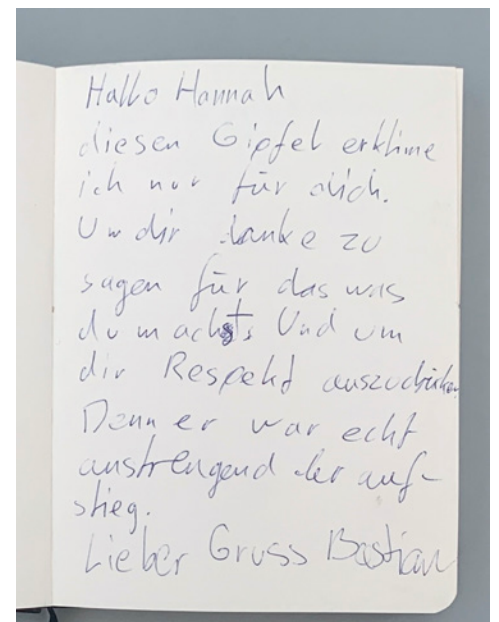 Hallo Hannah
diesen Gipfel erklime
ich nur für dich.
Um dir danke zu
sagen für das was
du machst. Und um
dir Respekt auszudrücken
Denn er war echt
anstrengend der auf-
stieg.
Lieber Gruss Bastian